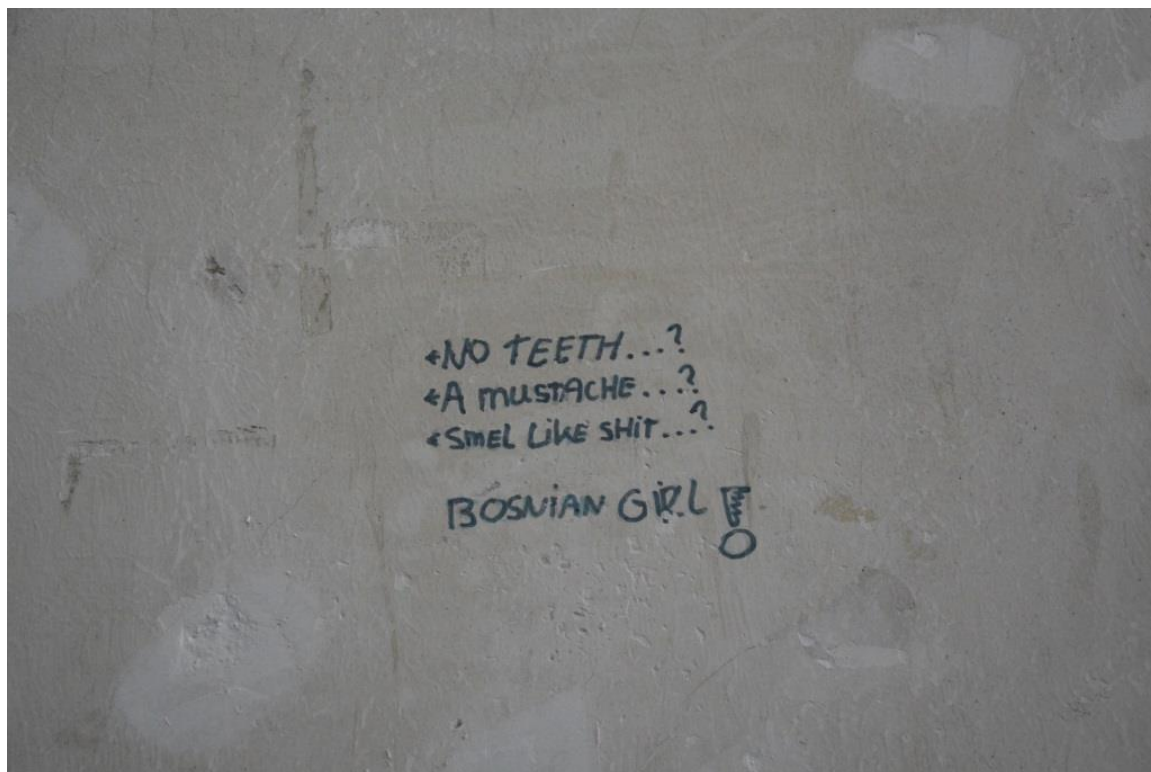 *NO TEETH...?
*A MUSTACHE...?
*SMEL LIKE SHIT...?
BOSNIAN GIRL!